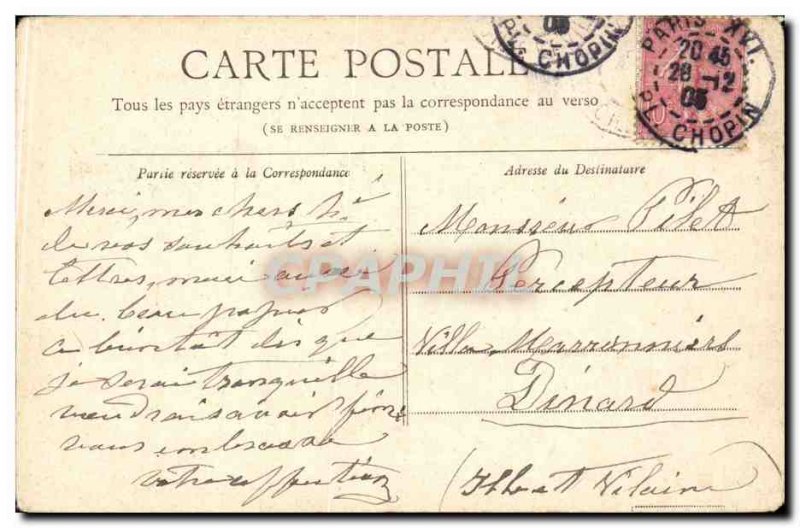 CARTE POSTALE
Tous les pays étrangers n'acceptent pas la correspondance au verso
(SE RENSEIGNER A LA POSTE)
Partie réservée à la Correspondance
Merci, mes chers
de vos souhaits et
lettres, merci aussi
du beau papier
a bientôt dis que
je serai tranquille
voudrais avoir
vous embrasse
votre affection
Adresse du Destinataire
Monsieur Pilet
Percepteur
Villa Marronniers
Dinard
(Ille et Vilaine)
PARIS XVI.
20 45
28 -12
05
PL. CHOPIN
05
PL. CHOPIN
CPAPHIL